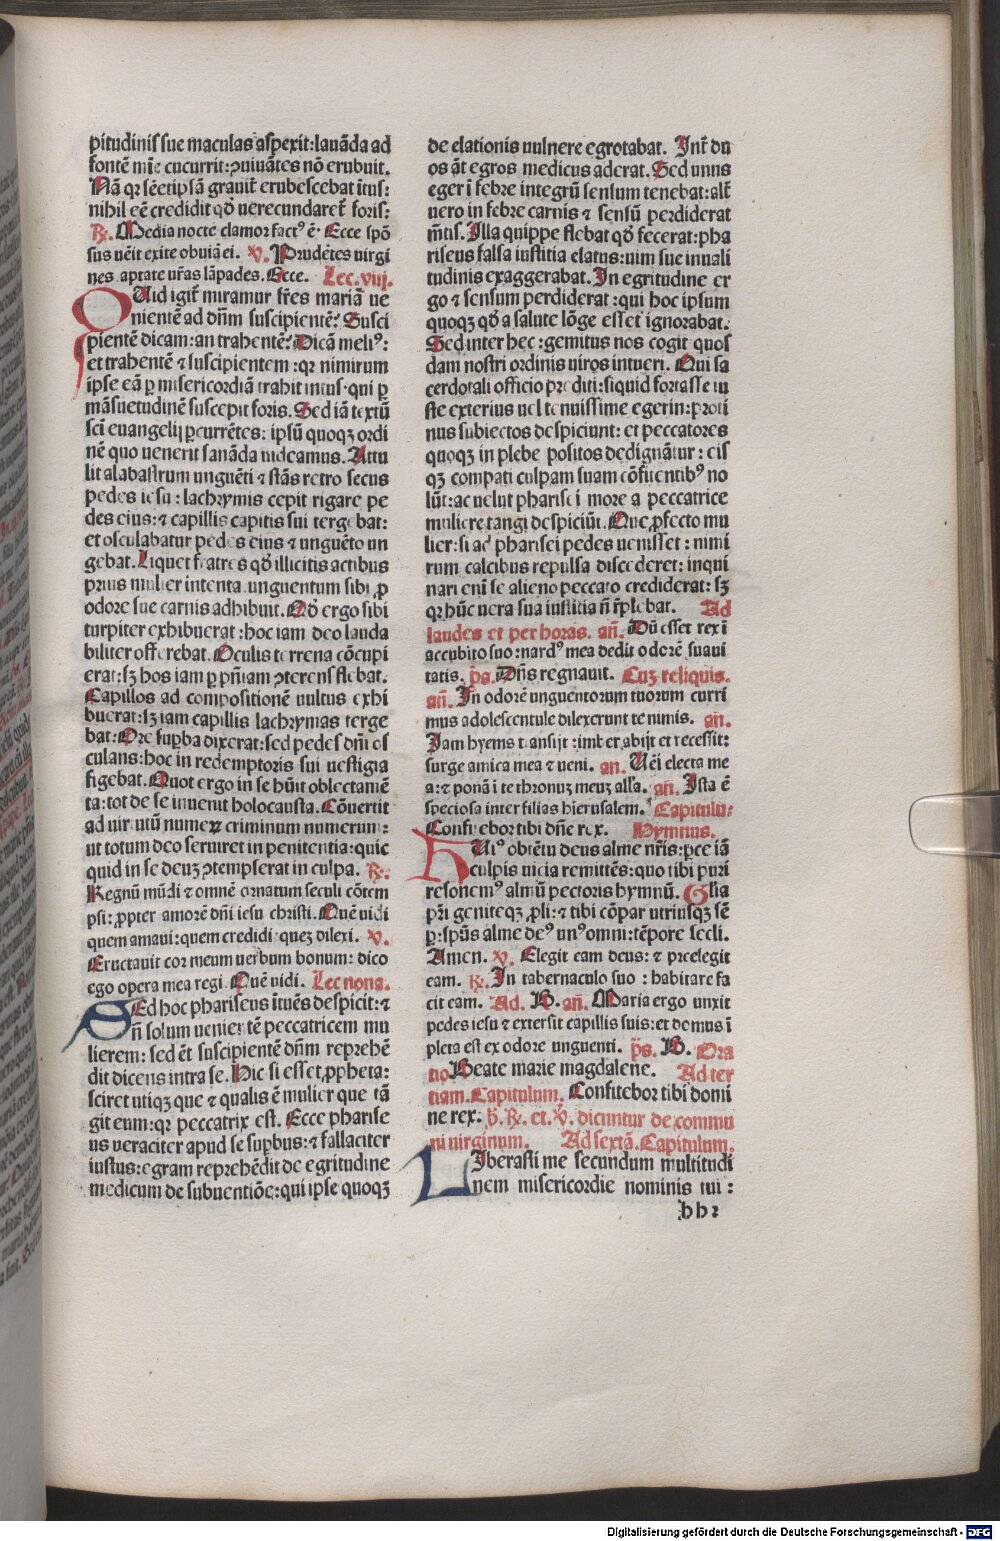 pitudinis sue maculas aspexit: lauāda ad
fontē mīe cucurrit: ꝯuiuātes nō erubuit.
Nā qꝛ sēetipsā grauit̄ erubescebat ītus:
nihil eē credidit qđ uerecundaret̄ foris:
℞. Media nocte clamor factꝰ ē· Ecce spō
sus uēit exite obuiā ei. ꝟ. Prudētes uirgi
nes aptate ur̄as lāpades. Ecce. Lec. viij.
QUid igit̄ miramur fr̄es mariā ue
nientē ad dn̄m suscipientē? Susci
pientē dicam: an trahentē? Dicā meliꝰ:
et trahentē ⁊ suscipientem: qꝛ nimirum
ipse eā ꝑ misericordiā trahit intus· qui ꝑ
māsuetudinē suscepit foris. Sed iā textū
sci̅ euangelij ꝑcurrētes: ipsū quoqꝫ ordi
nē quo uenerit sanāda uideamus. Attu
lit alabastrum unguēti ⁊ stās retro secus
pedes iesu: lachrymis cepit rigare pe
des eius: ⁊ capillis capitis sui tergebat:
et osculabatur pedes eius ⁊ unguēto un
gebat. Liquet fratres qđ illicitis actibus
prius mulier intenta unguentum sibi ꝓ
odore sue carnis adhibuit. Qđ ergo sibi
turpiter exhibuerat: hoc iam deo lauda
biliter offerebat. Oculis terrena cōcupi
erat: sꝫ hos iam ꝑ pn̄iam ꝯterens flebat.
Capillos ad compositionē uultus exhi
buerat: sꝫ iam capillis lachrymas terge
bat: Ore suꝑba dixerat: sed pedes dn̄i os
culans: hoc in redemptoris sui uestigia
figebat. Quot ergo in se hūit oblectamē
ta: tot de se inuenit holocausta. Cōuertit
ad uirtutū numeꝝ criminum numerum:
ut totum deo seruiret in penitentia: quic
quid in se deuꝫ ꝯtempserat in culpa. ℞.
Regnū mūdi ⁊ omnē ornatum seculi cōtem
psi: ꝓpter amorē dn̄i iesu christi. Quē uidi
quem amaui: quem credidi· queꝫ dilexi. ꝟ.
Eructauit cor meum uerbum bonum: dico
ego opera mea regi. Quē uidi. Lec nona.
SEd hoc phariseus ītuēs despicit: ⁊
n̄ solum uenientē peccatricem mu
lierem: sed ēt suscipientē dn̄m reprehē
dit dicens intra se. Hic si esset ꝓpheta:
sciret utiqꝫ que ⁊ qualis ē mulier que tā
git eum: qꝛ peccatrix est. Ecce pharise
us ueraciter apud se suꝑbus: ⁊ fallaciter
iustus: egram reprehēdit de egritudine
medicum de subuentiōe: qui ipse quoqꝫ
de elationis uulnere egrotabat. Int̄ du
os āt egros medicus aderat. Sed unus
eger ī febre integrū sensum tenebat: alt̄
uero in febre carnis ⁊ sensū perdiderat
mētis. Illa quippe flebat qđ fecerat: pha
riseus falsa iustitia elatus: uim sue inuali
tudinis exaggerabat. In egritudine er
go ⁊ sensum perdiderat: qui hoc ipsum
quoqꝫ qđ a salute lōge esset ignorabat.
Sed inter hec: gemitus nos cogit quos
dam nostri ordinis uiros intueri. Qui sa
cerdotali officio prediti: si quid fortasse iu
ste exterius uel tenuissime egerin: proti
nus subiectos despiciunt: et peccatores
quoqꝫ in plebe positos dedignātur: eis
qꝫ compati culpam suam cōfitentibꝰ no
lūt: ac uelut pharisei more a peccatrice
muliere tangi despiciūt. Que ꝓfecto mu
lier: si ad pharisei pedes uenisset: nimi
rum calcibus repulsa discederet: inqui
nari eni̅ se alieno peccato crediderat: sꝫ
qꝛ hūc uera sua iustitia n̄ r̄plebat. Ad
laudes et per horas. an̄. Dū esset rex ī
accubito suo: nardꝰ mea dedit odorē suaui
tatis. p̄s. Dn̄s regnauit. Cuꝫ reliquis.
an̄. In odorē unguentorum tuorum curri
mus adolescentule dilexerunt te nimis. an̄.
Jam hyems transijt: imber abijt et recessit:
surge amica mea ⁊ ueni. an. Uēi electa me
a: ⁊ ponā ī te thronuꝫ meuꝫ all'a. an̄. Ista ē
speciosa inter filias hierusalem. Capitulu:
Confitebor tibi dn̄e rex. Hymnus.
HUiꝰ obtētu deus alme nr̄is: ꝑce iā
culpis uicia remittēs: quo tibi puri
resonemꝰ almū pectoris hymnū. Glīa
pr̄i geniteqꝫ ꝓli: ⁊ tibi cōpar utriusqꝫ sē
ꝑ: spūs alme deꝰ unꝰ omni: tēpore secli.
Amen. ꝟ. Elegit eam deus: ⁊ preelegit
eam. ℞. In tabernaculo suo: habitare fa
cit eam. Ad. B. an̄. Maria ergo unxit
pedes iesu ⁊ extersit capillis suis: et domus ī
pleta est ex odore unguenti. p̄s. B. Ora
tio Beate marie magdalene. Ad ter
tiam. Capitulum. Confitebor tibi domi
ne rex. ħ. ℞. et. ꝟ. dicuntur de commu
ni uirginum. Ad sextā. Capitulum.
LIberasti me secundum multitudi
nem misericordie nominis tui:
bb2
Digitalisierung gefördert durch die Deutsche Forschungsgemeinschaft - DFG